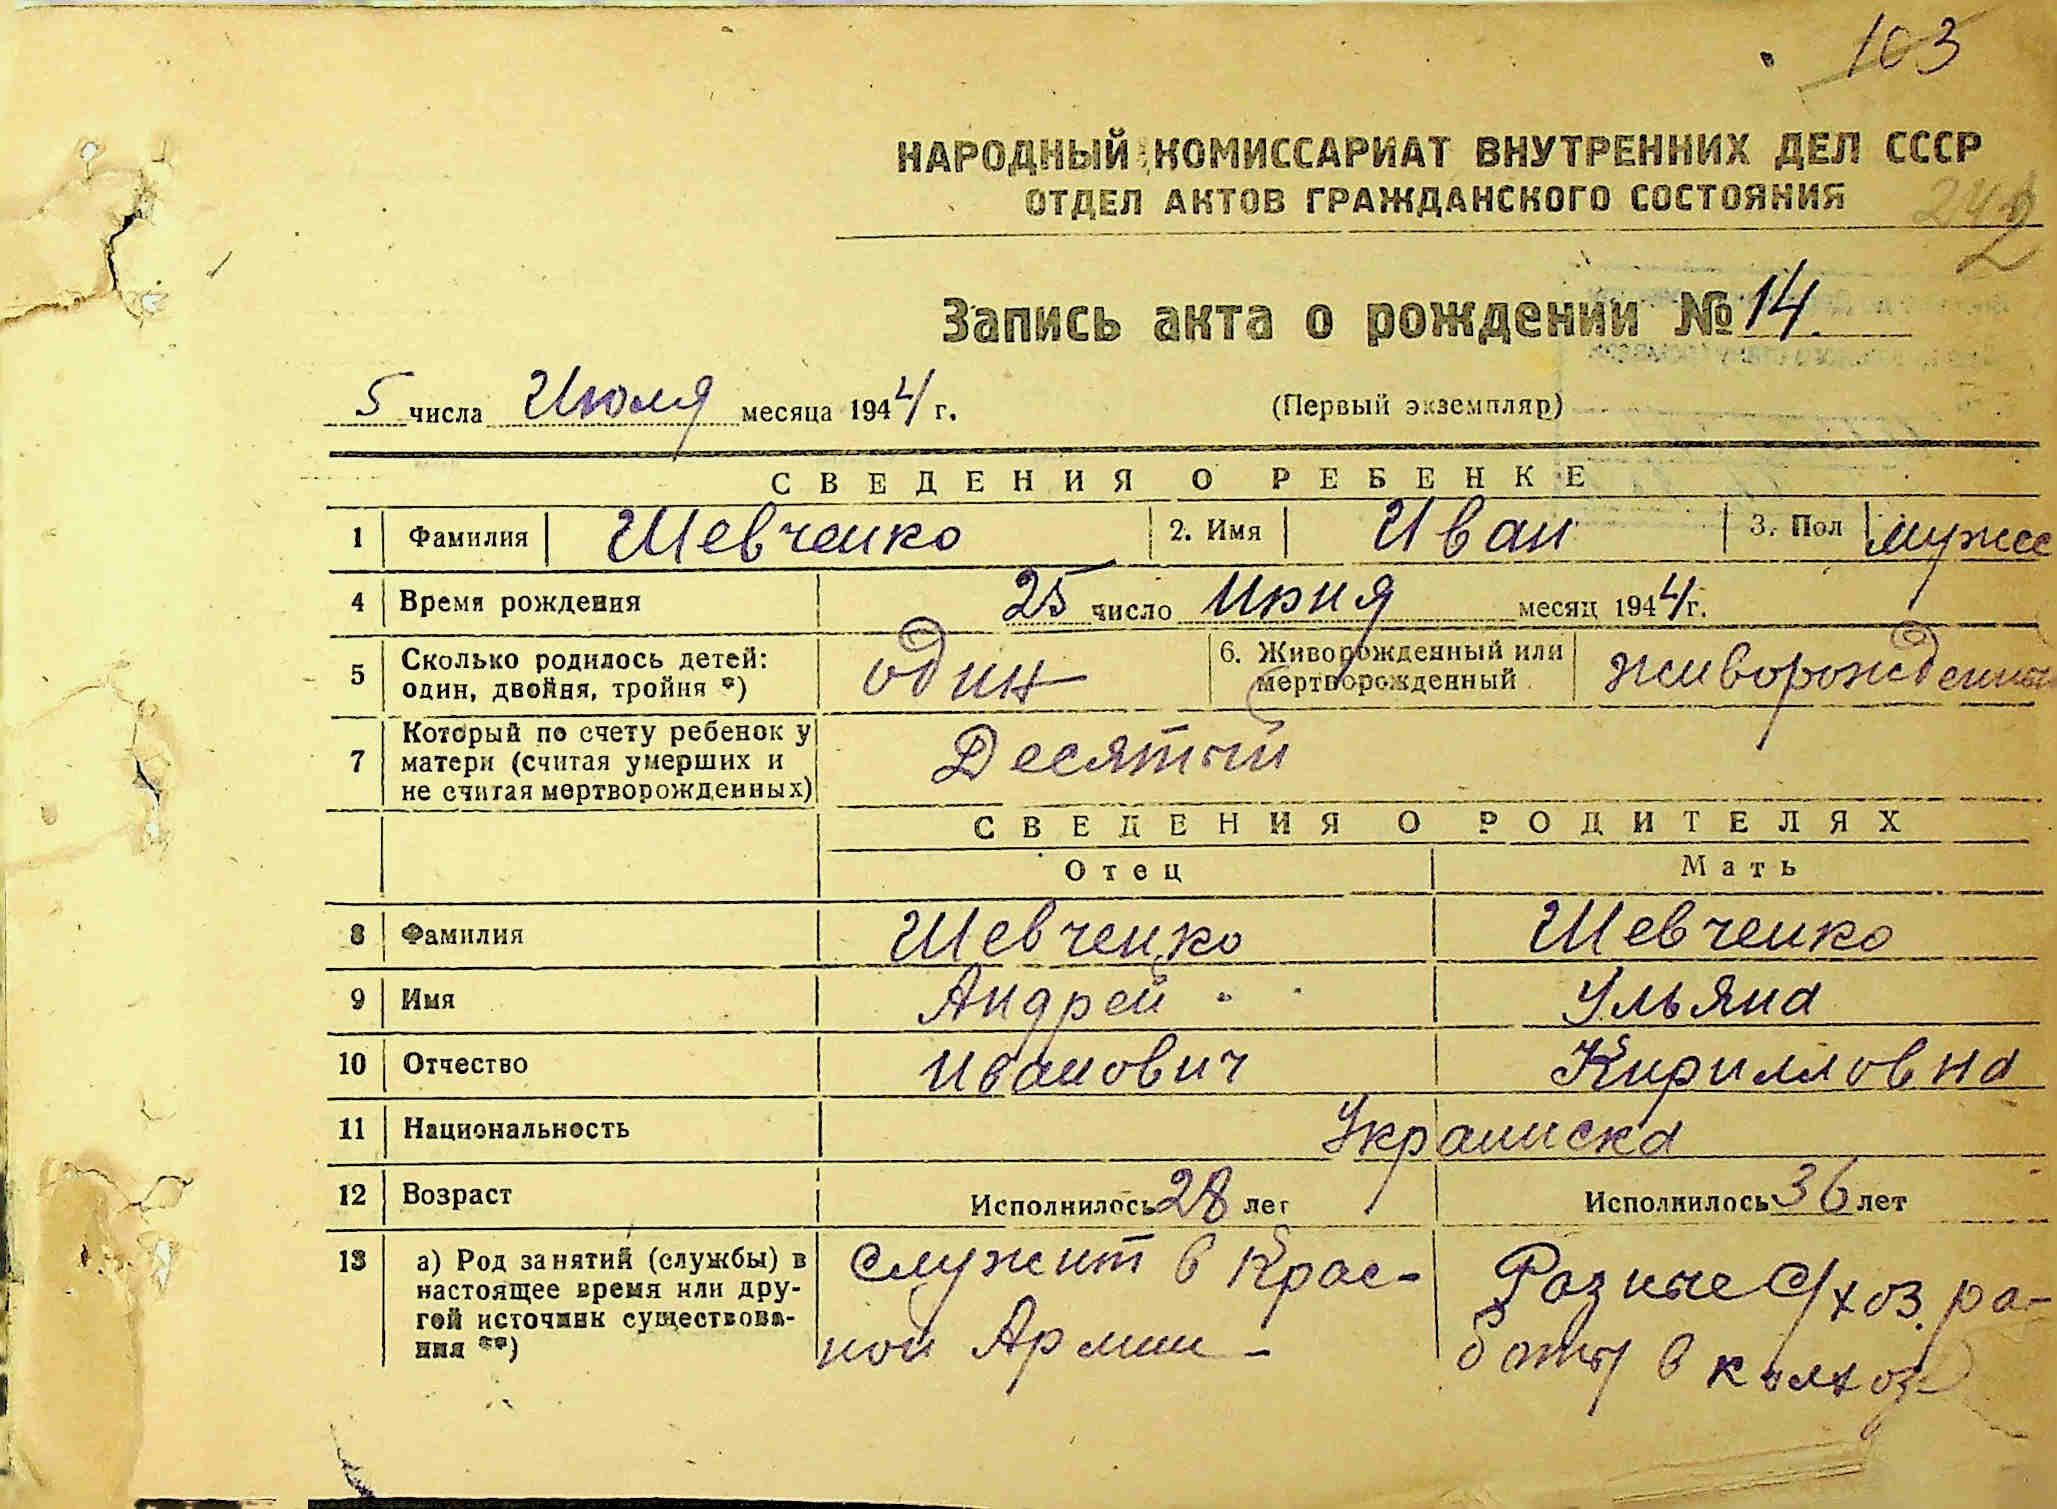 103
НАРОДНЫЙ КОМИССАРИАТ ВНУТРЕННИХ ДЕЛ СССР
ОТДЕЛ АКТОВ ГРАЖДАНСКОГО СОСТОЯНИЯ
242
2
Запись акта о рождении № 14.
5 числа Июля месяца 1944 г. (Первый экземпляр)
СВЕДЕНИЯ О РЕБЕНКЕ
1 Фамилия Шевченко 2. Имя Иван 3. Пол мужск
4 Время рождения 25 число Июня месяц 1944 г.
5 Сколько родилось детей: один, двойня, тройня *) один 6. Живорожденный или мертворожденный живорожденный
7 Который по счету ребенок у матери (считая умерших и не считая мертворожденных) Десятый
СВЕДЕНИЯ О РОДИТЕЛЯХ
Отец Мать
8 Фамилия Шевченко Шевченко
9 Имя Андрей Ульяна
10 Отчество Иванович Кирилловна
11 Национальность Украинска
12 Возраст Исполнилось 28 лет Исполнилось 36 лет
13 а) Род занятий (службы) в настоящее время или другой источник существования **) служит в Красной Армии - Разные С/хоз. работы в колхозе